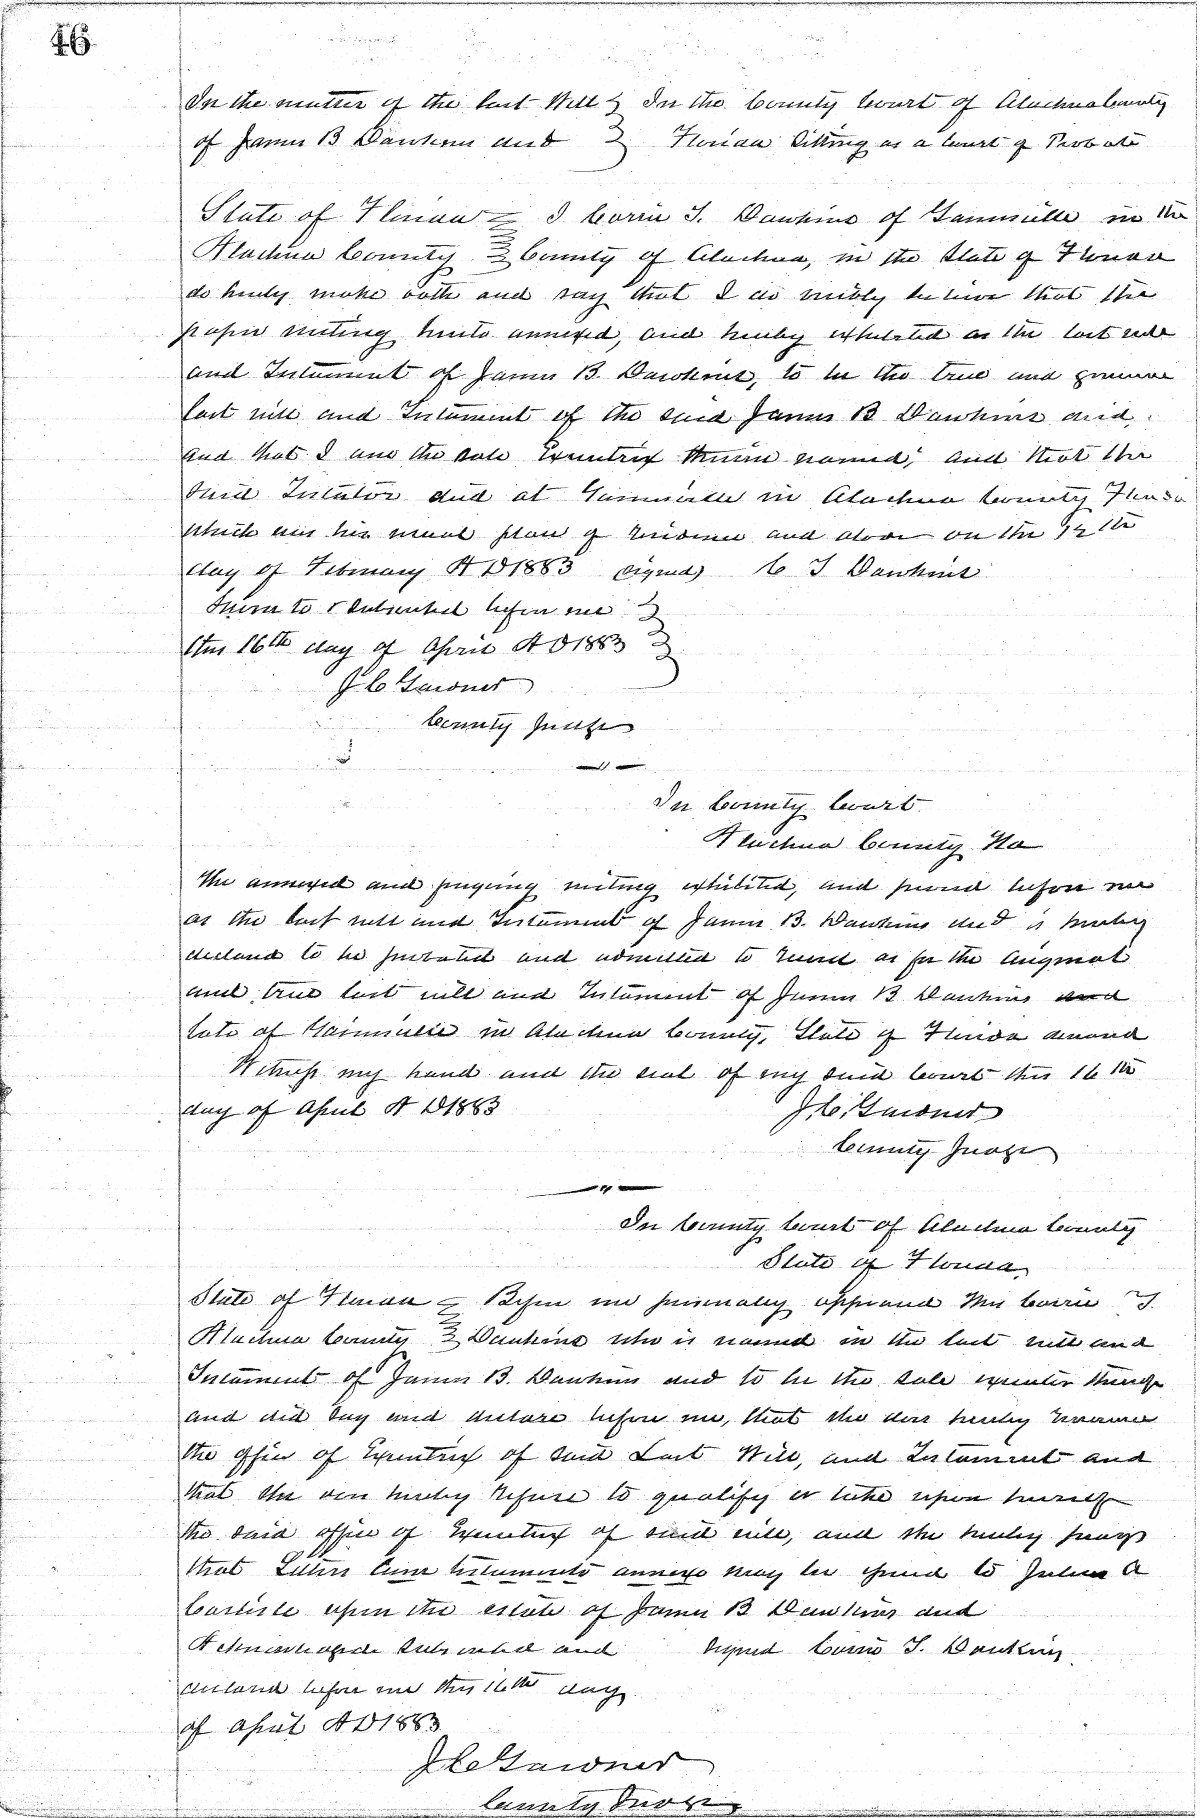 46
In the matter of the last Will } In the County Court of Alachua County
of James B Dawkins decd } Florida Sitting as a Court of Probate
State of Florida } I Carrie T. Dawkins of Gainesville in the
Alachua County } County of Alachua, in the State of Florida
do hereby make oath and say that I do verily believe that the
paper writing hereto annexed, and hereby exhibited as the last will
and Testament of James B. Dawkins, to be the true and genuine
last will and Testament of the said James B Dawkins decd,
and that I am the sole Executrix therein named; and that the
said Testator died at Gainesville in Alachua County Florida
which was his usual place of residence and abode on the 12th
day of February A D 1883 (signed) C T Dawkins
Sworn to & Subscribed before me }
this 16th day of April A D 1883 }
J C Gardner
County Judge
In County Court
Alachua County Fla
The annexed and foregoing writing exhibited, and proved before me
as the last will and Testament of James B. Dawkins decd is hereby
declared to be probated and admitted to record as for the original
and true last will and Testament of James B Dawkins and
late of Gainesville in Alachua County, State of Florida deceased
Witness my hand and the seal of my said Court this 16th
day of April A D 1883 J. C. Gardner
County Judge
In County Court of Alachua County
State of Florida,
State of Florida } Before me personally appeared Mrs Carrie T.
Alachua County } Dawkins who is named in the last will and
Testament of James B. Dawkins decd to be the sole executor thereof
and did say and declare before me, that she does hereby renounce
the office of Executrix of said Last Will, and Testament and
that she does hereby refuse to qualify or take upon herself
the said office of Executrix of said will, and she hereby prays
that Letters Cum testamento annexo may be issued to Julien A
Carlisle upon the estate of James B Dawkins decd
Acknowledged Subscribed and Signed Carrie T. Dawkins
declared before me this 16th day
of April A D 1883
J C Gardner
County Judge